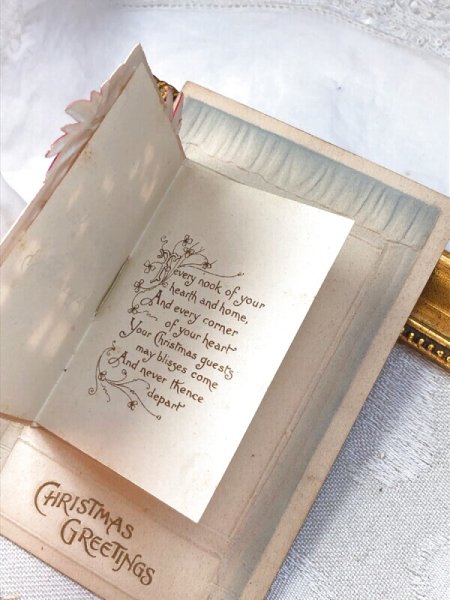 every nook of your
hearth and home,
And every corner
of your heart
Your Christmas guests
may blisses come
And never thence
depart
CHRISTMAS
GREETINGS